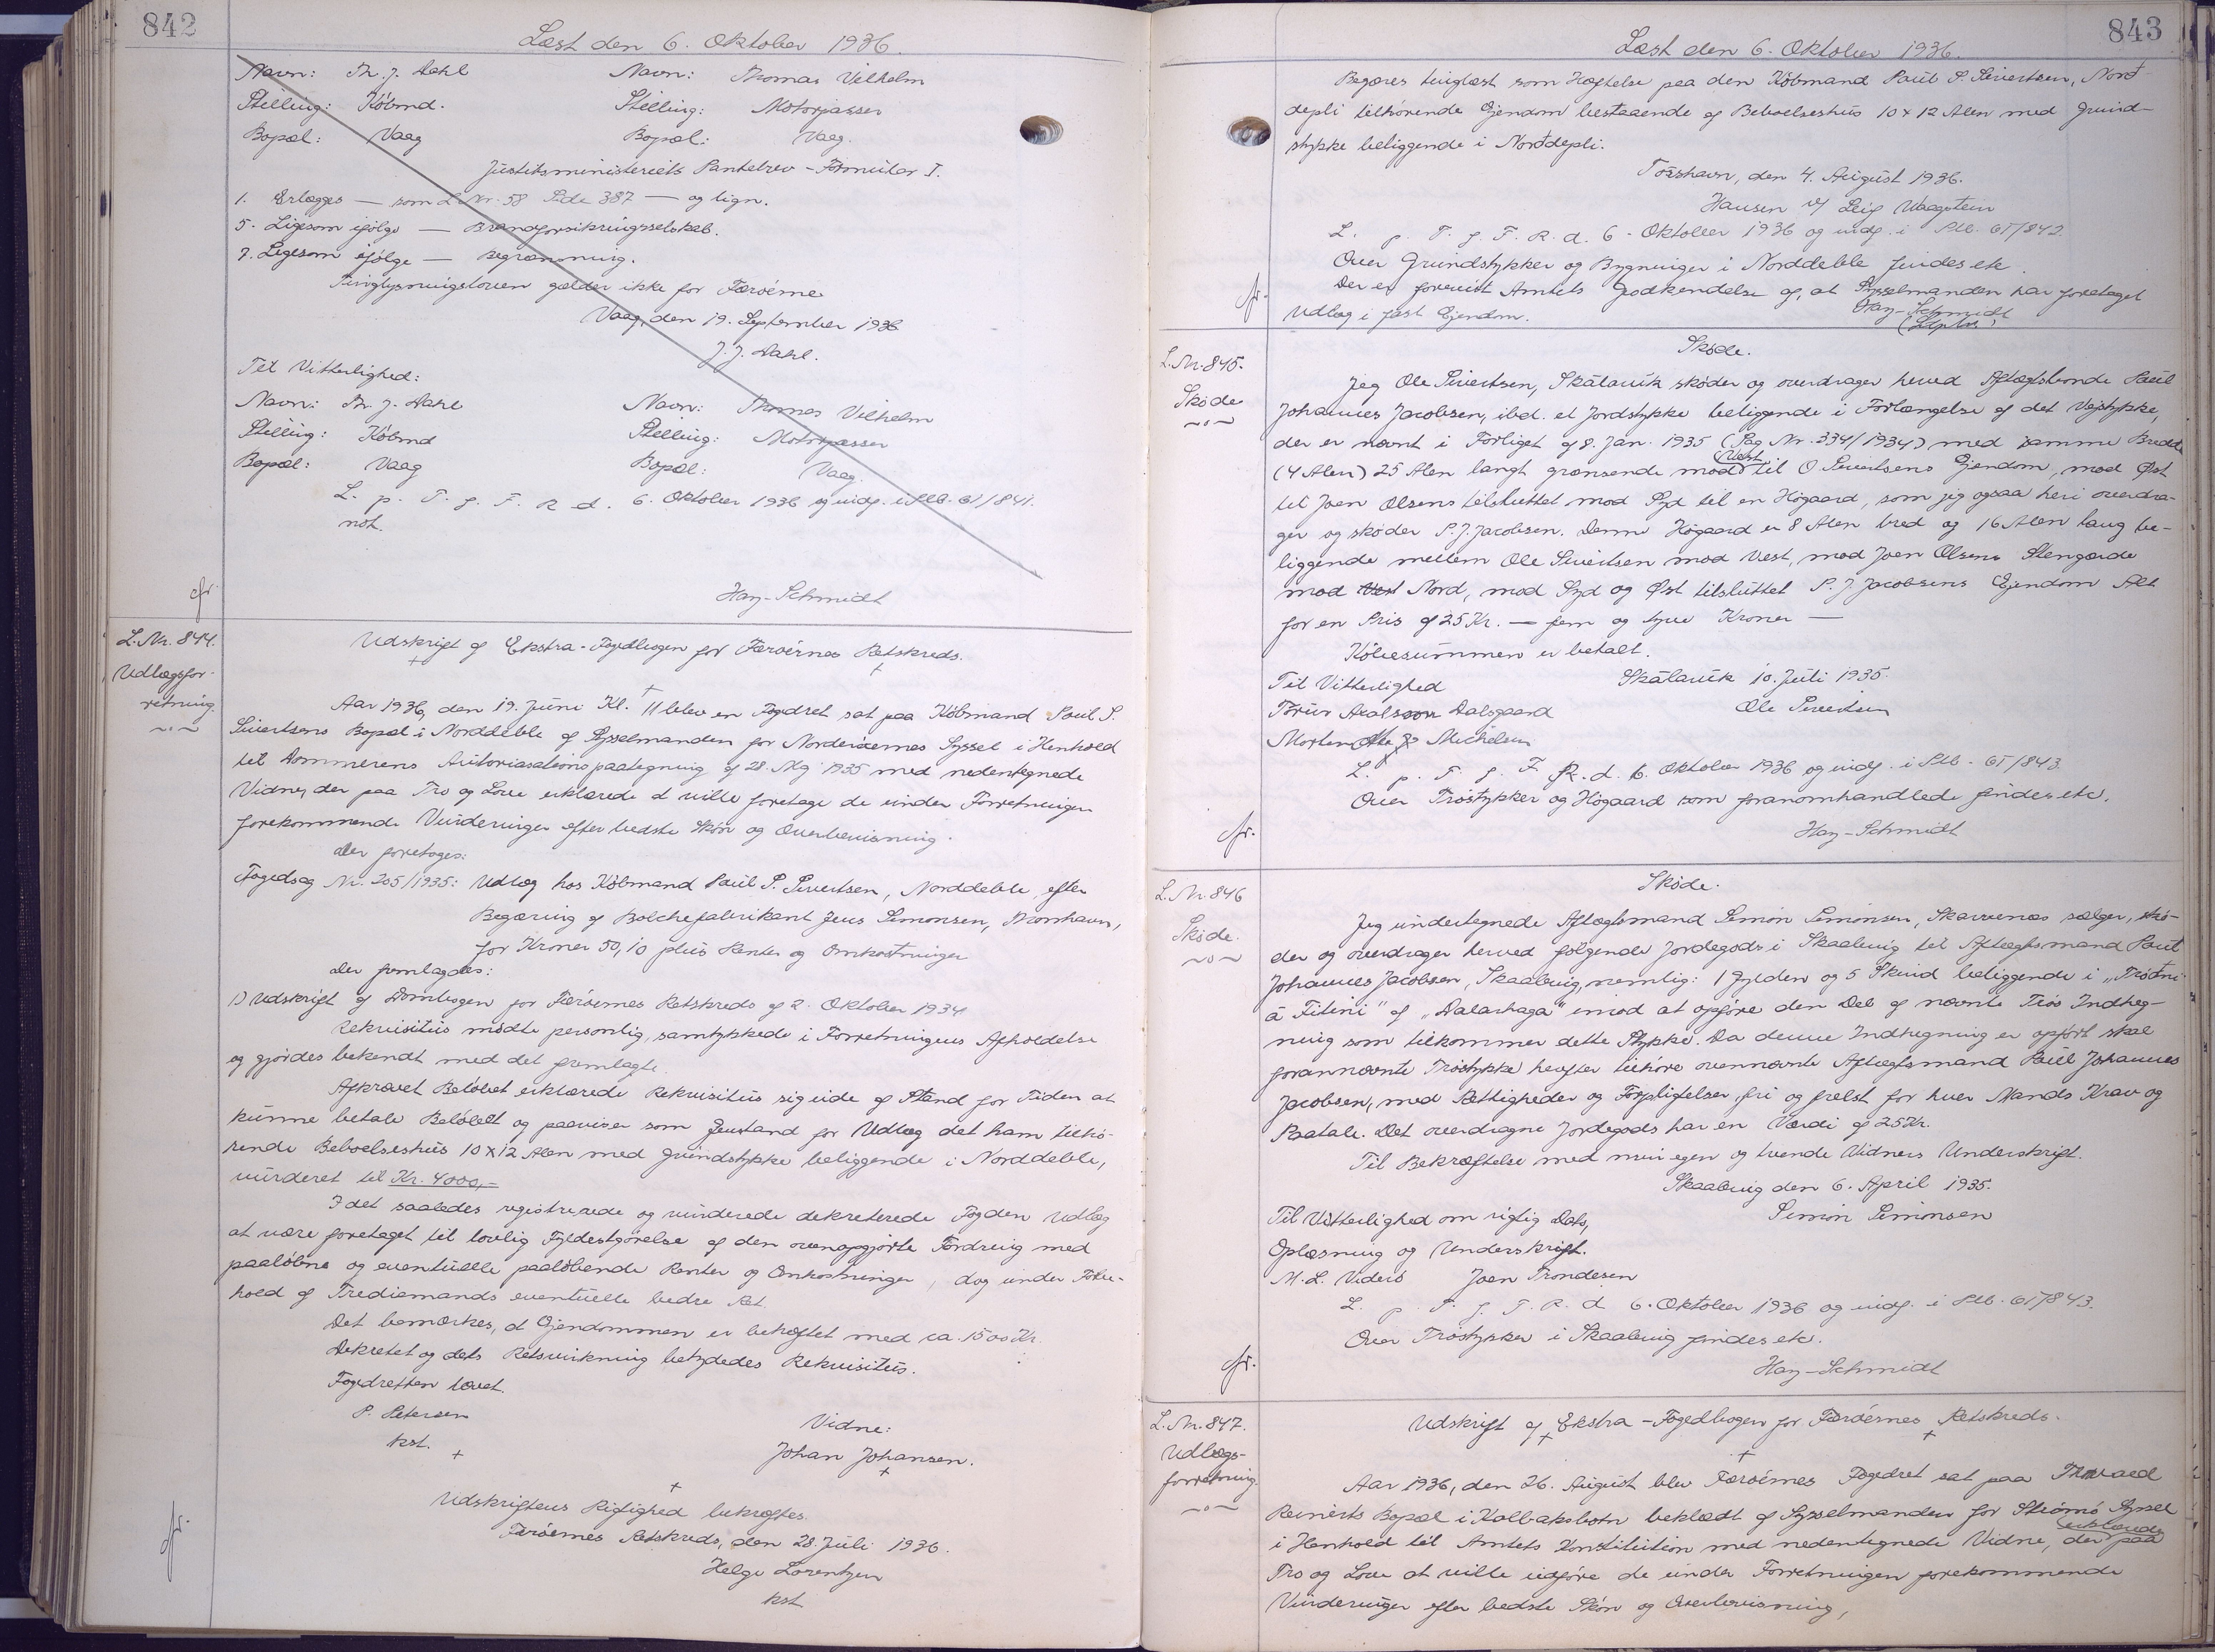 842
Læst den 6. Oktober 1936.
Navn: Th. J. Dahl Navn: Thomas Vilhelm
Stilling: Købmd. Stilling: Motorpasser
Bopæl: Vaag Bopæl: Vaag.
Justitsministeriets Pantebrev-Formular I.
1. Erlægges — som L. Nr. 58 Side 387 — og lign.
5. Ligesom ifølge — Brandforsikringsselskab.
9. Ligesom ifølge — Begrænsning.
Tinglysningsloven gælder ikke for Færøerne
Vaag, den 19. September 1936
J. J. Dahl.
Til Vitterlighed:
Navn: Th. J. Dahl Navn: Thomas Vilhelm
Stilling: Købmd Stilling: Motorpasser
Bopæl: Vaag Bopæl: Vaag.
L. p. T. f. F. R. d. 6. Oktober 1936 og indf. i Ptb. 61/841.
not.
Hay-Schmidt
cfr.
L. Nr. 844.
Udlægsfor-
retning.
Udskrift af Ekstra-Fogedbogen for Færøernes Retskreds.
Aar 1936, den 19. Juni Kl. 11 blev en Fogedret sat paa Købmand Poul S.
Sivertsens Bopæl i Norddeble af Sysselmanden for Norderøernes Syssel i Henhold
til Dommerens Autorisationspaategning af 28. Maj 1935 med nedentegnede
Vidne, der paa Tro og Love erklærede at ville foretage de under Forretningen
forekommende Vurderinger efter bedste Skøn og Overbevisning.
Der foretoges:
Fogedsag Nr. 205/1935: Udlæg hos Købmand Poul S. Sivertsen, Norddeble, efter
Begæring af Bolchefabrikant Jens Simonsen, Thorshavn,
for Kroner 50,10 plus Renter og Omkostninger
Der fremlagdes:
1) Udskrift af Dombogen for Færøernes Retskreds af 2. Oktober 1934
Rekvisitus mødte personlig, samtykkede i Forretningens Afholdelse
og gjordes bekendt med det fremlagte.
Afkrævet Beløbet erklærede Rekvisitus sig ude af Stand for Tiden at
kunne betale Beløbet og paaviser som Genstand for Udlæg det ham tilhø-
rende Beboelseshus 10 x 12 Alen med Grundstykke beliggende i Norddeble,
vurderet til Kr. 4000,-
I det saaledes registrerede og vurderede dekreterede Fogden Udlæg
at være foretaget til lovlig Fyldestgørelse af den ovenopgjorte Fordring med
paaløbne og eventuelle paaløbende Renter og Omkostninger, dog under Forbe-
hold af Trediemands eventuelle bedre Ret.
Det bemærkes, at Ejendommen er behæftet med ca. 1500 Kr.
Dekretet og dets Retsvirkning betydedes Rekvisitus.
Fogedretten hævet.
P. Petersen Vidne:
kst. Johan Johansen.
Udskriftens Rigtighed bekræftes.
Færøernes Retskreds, den 28. Juli 1936.
Helge Lorentzen
kst
cfr.
843
Læst den 6. Oktober 1936.
Begæres tinglæst som Hæftelse paa den Købmand Poul S. Sivertsen, Nord-
depli tilhørende Ejendom bestaaende af Beboelseshus 10 x 12 Alen med Grund-
stykke beliggende i Norddepli.
Tórshavn, den 4. August 1936.
Hansen v/ Leif Waagstein
L. p. T. f. F. R. d. 6. Oktober 1936 og indf. i Ptb. 61/842.
Over Grundstykker og Bygninger i Norddeble findes etc.
Der er forevist Amtets Godkendelse af, at Sysselmanden har foretaget
Udlæg i fast Ejendom.
Hay-Schmidt
cfr.
L. Nr. 845.
Skøde
Skøde.
Jeg Ole Sivertsen, Skálavík skøder og overdrager herved Aftægtsbonde Poul
Johannes Jacobsen, ibd. et Jordstykke beliggende i Forlængelse af det Vejstykke,
der er nævnt i Forliget af 8. Jan. 1935 (Sag Nr. 334/1934) med samme Bredde
(4 Alen) 25 Alen langt grænsende mod Vest til O Sivertsens Ejendom, mod Øst
til Joen Olsens tilsluttet mod Syd til en Høgaard, som jeg ogsaa heri overdra-
ger og skøder P. J. Jacobsen. Denne Høgaard er 8 Alen bred og 16 Alen lang be-
liggende mellem Ole Sivertsen mod Vest, mod Joen Olsens Stengærde
mod Vest Nord, mod Syd og Øst tilsluttet P. J Jacobsens Ejendom Alt
for en Pris af 25 Kr. — fem og tyve Kroner —
Købesummen er betalt.
Til Vitterlighed Skálavík 10. Juli 1935.
Dalsgaard Ole Sivertsen
Morten Michelsen
L. p. T. f. F. R. d. 6. Oktober 1936 og indf. i Ptb. 61/843.
Over Trøstykker og Høgaard som foranomhandlede findes etc.
Hay-Schmidt
cfr.
L. Nr. 846
Skøde.
Skøde.
Jeg undertegnede Aftægtsmand Simon Simonsen, Skarvenæs sælger, skø-
der og overdrager herved følgende Jordegods i Skaalevig til Aftægtsmand Poul
Johannes Jacobsen, Skaalevig, nemlig: 1 Gylden og 5 Skind beliggende i „Trøðni
á Fitini" af „Dalarhaga" imod at opføre den Del af nævnte Trøs Indheg-
ning som tilkommer dette Stykke. Da denne Indhegning er opført skal
forannævnte Trøstykke herefter tilhøre ovennævnte Aftægtsmand Poul Johannes
Jacobsen, med Rettigheder og Forpligtelser, fri og frelst for hver Mands Krav og
Paatale. Det overdragne Jordegods har en Værdi af 25 Kr.
Til Bekræftelse med min egen og tvende Vidners Underskrift.
Skaalevig den 6. April 1935.
Til Vitterlighed om rigtig Dato, Simon Simonsen
Oplæsning og Underskrift.
M. L. Viderø Joen Trondesen
L. p. T. f. F. R. d. 6. Oktober 1936 og indf. i Ptb. 61/843.
Over Trøstykker i Skaalevig findes etc.
Hay-Schmidt
cfr.
L. Nr. 847.
Udlægs-
forretning.
Udskrift af Ekstra-Fogedbogen for Færøernes Retskreds.
Aar 1936, den 26. August blev Færøernes Fogedret sat paa Thorvald
Reinerts Bopæl i Kalbaksbotn beklædt af Sysselmanden for Strømø Syssel
i Henhold til Amtets Konstitution med nedentegnede Vidne, der erklærede paa
Tro og Love at ville udføre de under Forretningen forekommende
Vurderinger efter bedste Skøn og Overbevisning,